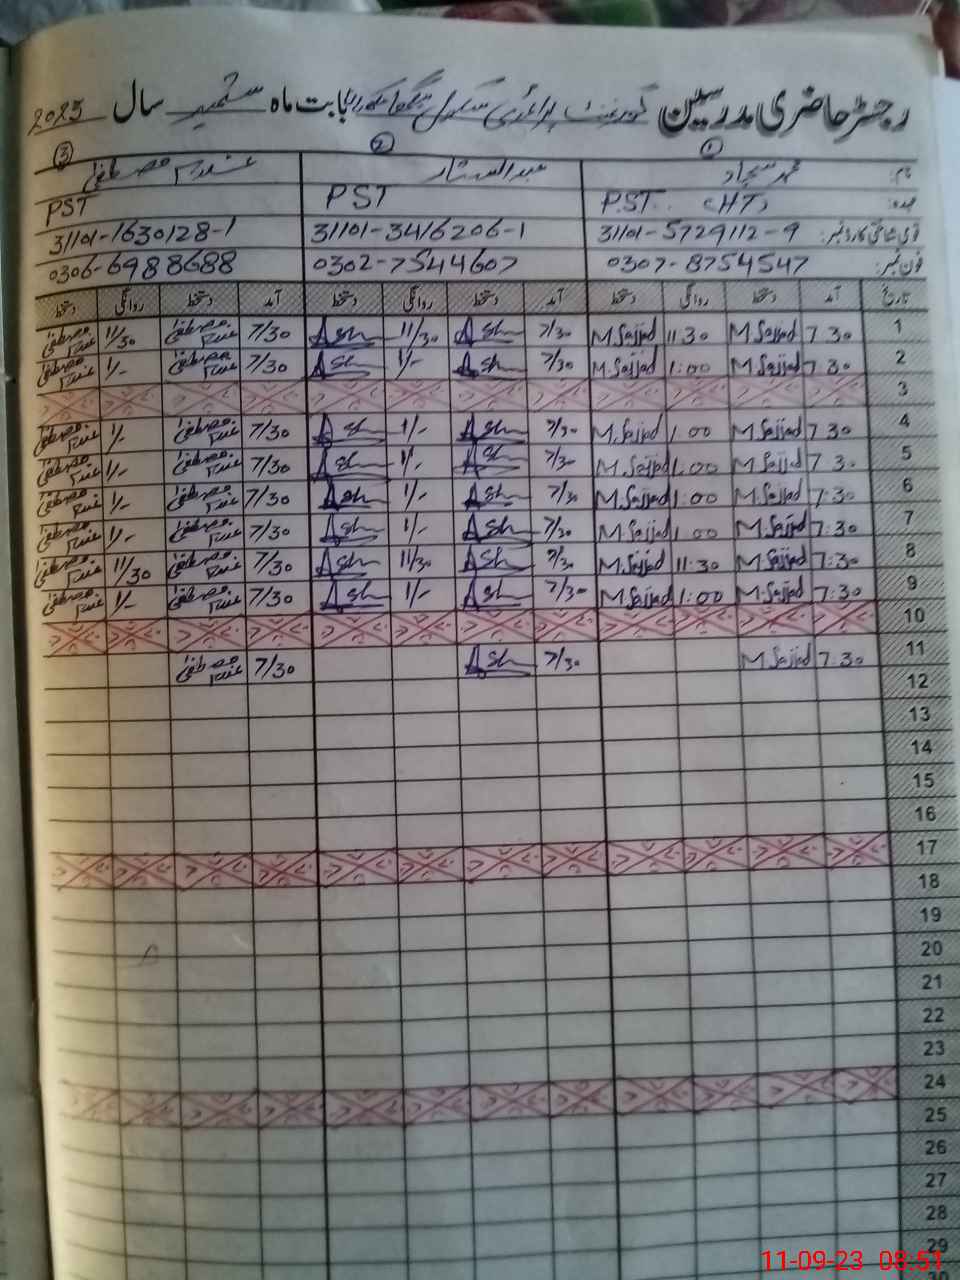 رجسٹر حاضری مدرسین گورنمنٹ پرائمری سکول بابت ماہ ستمبر سال 2023
① ② ③
نام: محمد سجاد عبدالستار غلام مصطفیٰ
عہدہ: P.ST. (HT) PST PST
قومی شناختی کارڈ نمبر: 31101-5729112-9 31101-3416206-1 31101-1630128-1
فون نمبر: 0307-8754547 0302-7544607 0306-6988688
تاریخ آمد دستخط روانگی دستخط آمد دستخط روانگی دستخط آمد دستخط روانگی دستخط
1 7 30 M.Sajjad 11 30 M.Sajjad 7/30 Ash 11/30 Ash 7/30 غلام مصطفیٰ 11/30 غلام مصطفیٰ
2 7 30 M.Sajjad 1:00 M.Sajjad 7/30 Ash 1/- Ash 7/30 غلام مصطفیٰ 1/- غلام مصطفیٰ
3
4 7 30 M.Sajjad 1 00 M.Sajjad 7/30 Ash 1/- Ash 7/30 غلام مصطفیٰ 1/- غلام مصطفیٰ
5 7 30 M.Sajjad 1.00 M.Sajjad 7/30 Ash 1/- Ash 7/30 غلام مصطفیٰ 1/- غلام مصطفیٰ
6 7:30 M.Sajjad 1:00 M.Sajjad 7/30 Ash 1/- Ash 7/30 غلام مصطفیٰ 1/- غلام مصطفیٰ
7 7:30 M.Sajjad 1 00 M.Sajjad 7/30 Ash 1/- Ash 7/30 غلام مصطفیٰ 1/- غلام مصطفیٰ
8 7:30 M.Sajjad 11:30 M.Sajjad 7/30 Ash 11/30 Ash 7/30 غلام مصطفیٰ 11/30 غلام مصطفیٰ
9 7:30 M.Sajjad 1:00 M.Sajjad 7/30 Ash 1/- Ash 7/30 غلام مصطفیٰ 1/- غلام مصطفیٰ
10
11 7:30 M.Sajjad 7/30 Ash 7/30 غلام مصطفیٰ
12
13
14
15
16
17
18
19
20
21
22
23
24
25
26
27
28
29
11-09-23 08:51